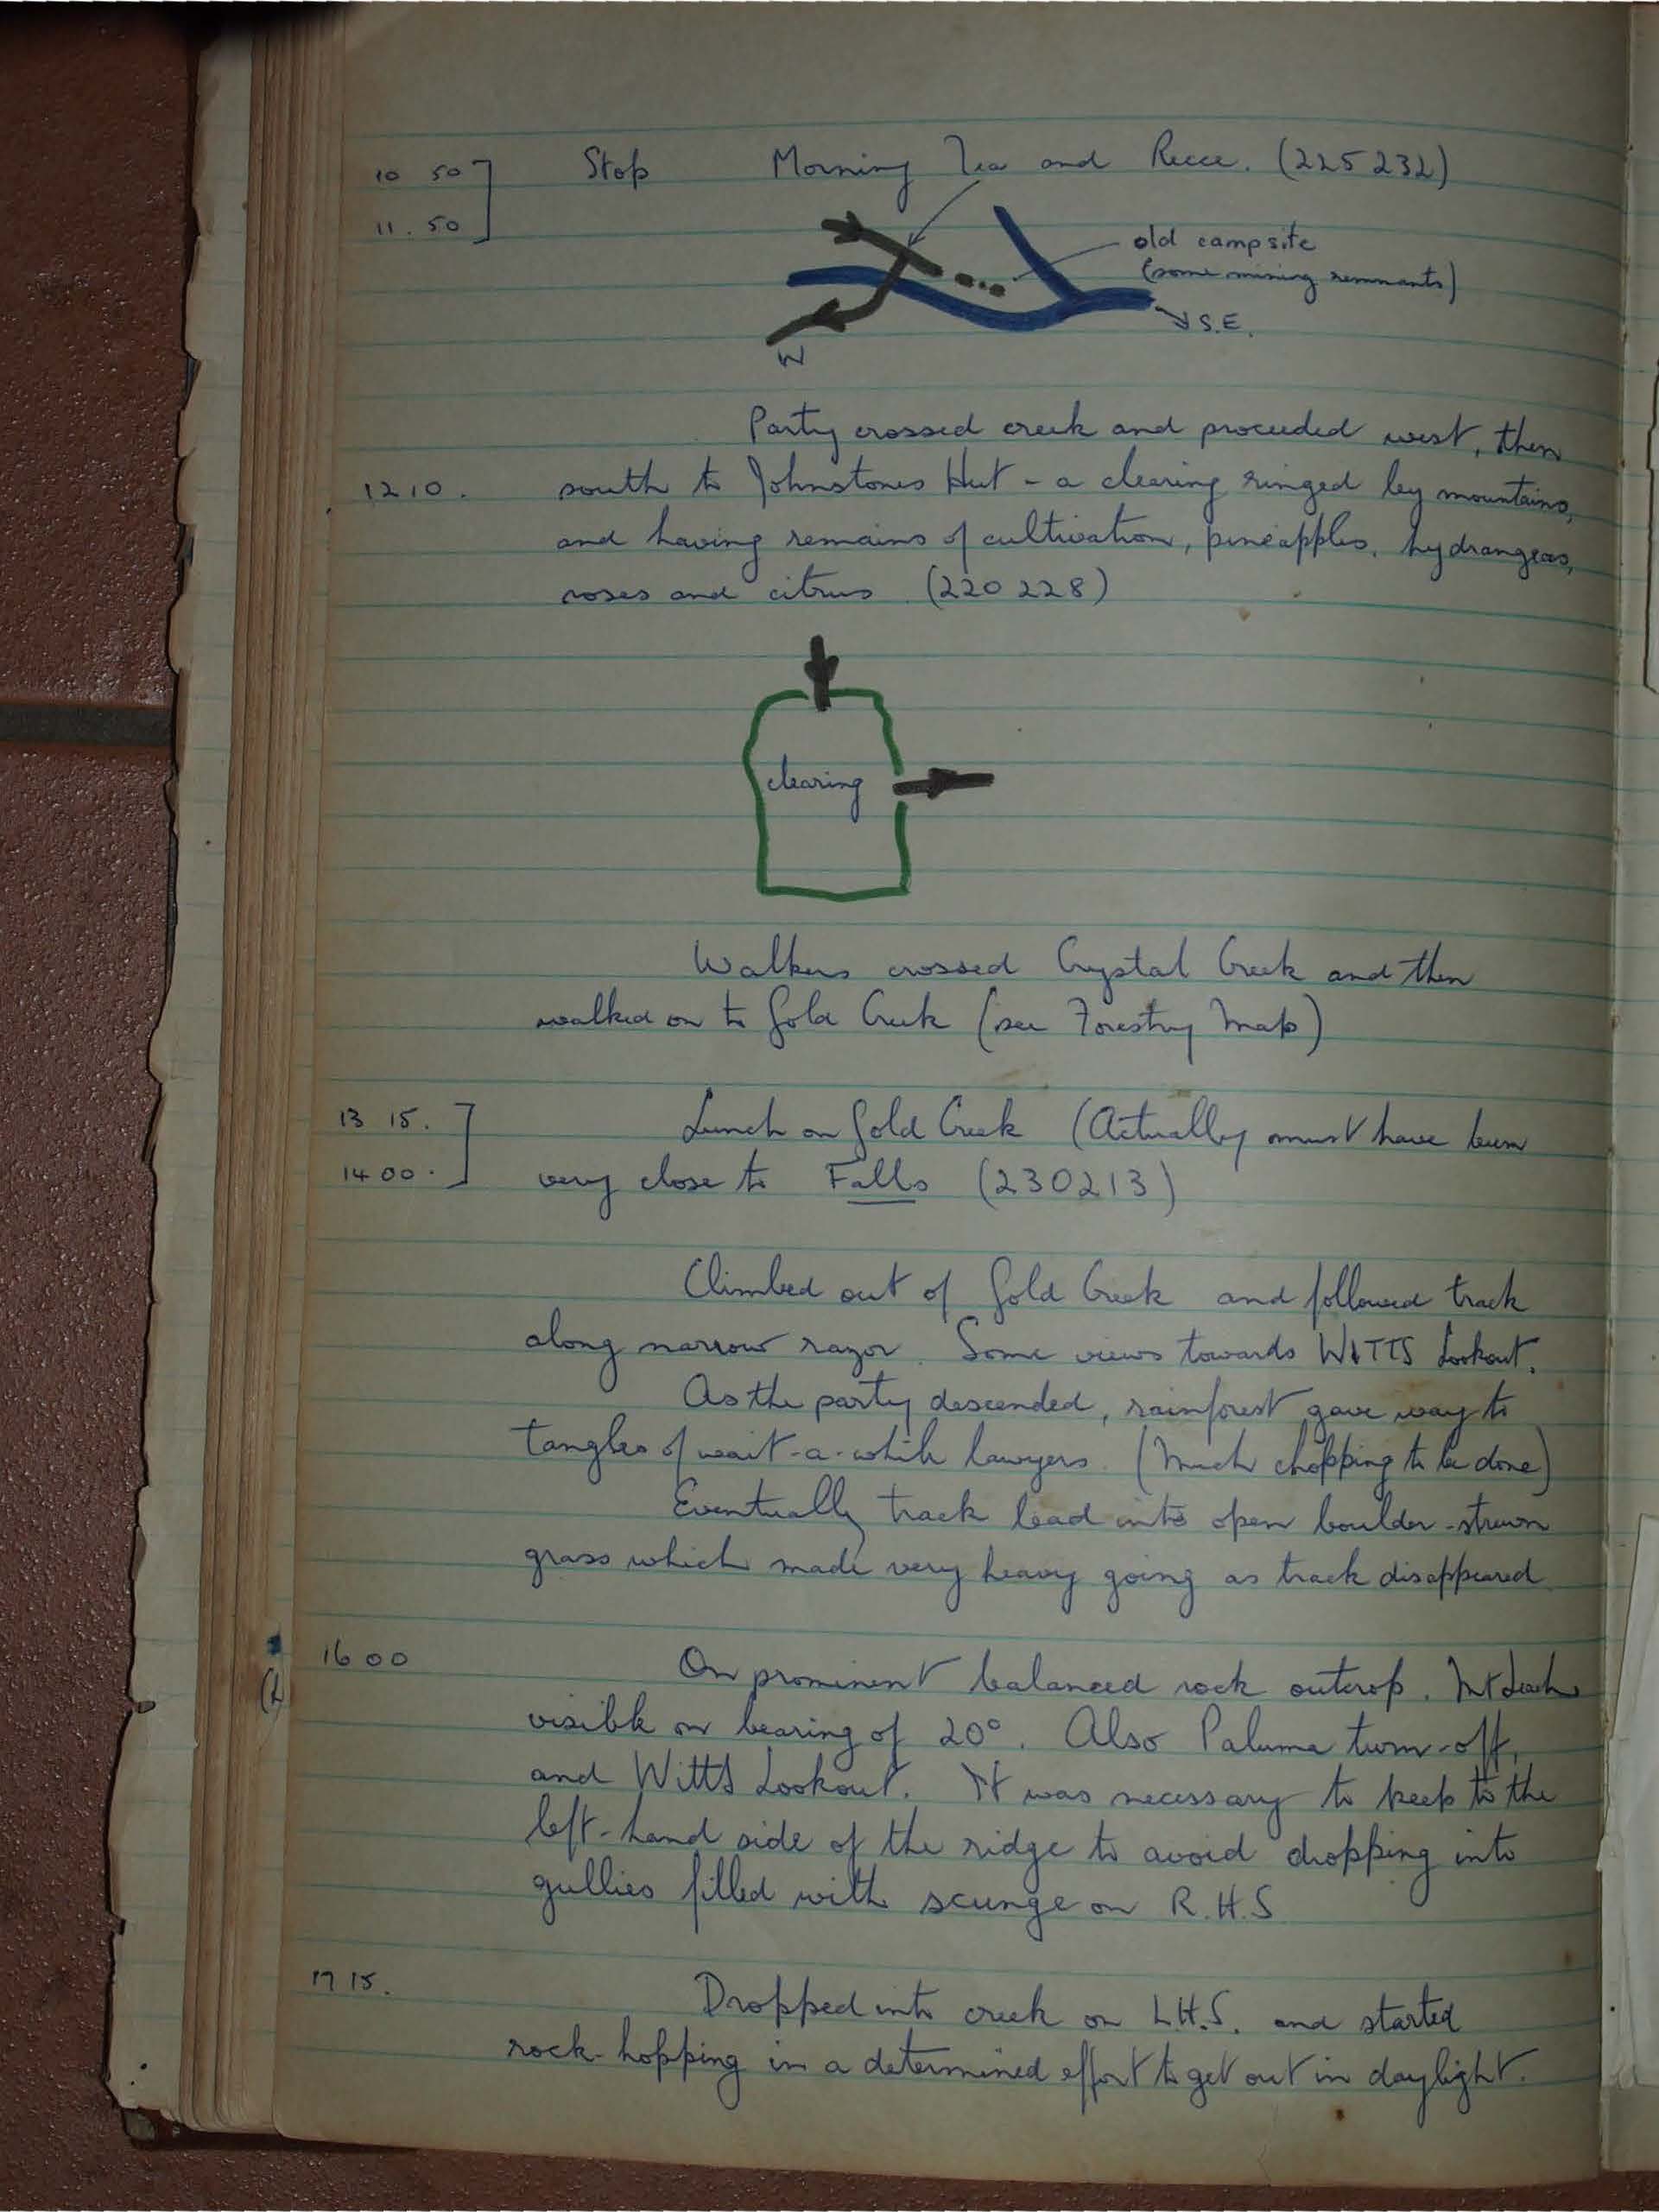 10 50 Stop Morning Tea and Recce. (225232)
11.50
old campsite
(some mining remnants)
S.E.
W
Party crossed creek and proceeded west, then
1210. south to Johnstones Hut - a clearing ringed by mountains,
and having remains of cultivation, pineapples, hydrangeas,
roses and citrus (220228)
clearing
Walkers crossed Crystal Creek and then
walked on to Gold Creek (see Forestry Map)
13 15. Lunch on Gold Creek (Actually must have been
1400. very close to Falls (230213)
Climbed out of Gold Creek and followed track
along narrow razor. Some views towards WITTS Lookout.
As the party descended, rainforest gave way to
tangles of wait-a-while lawyers. (Much chopping to be done)
Eventually track lead into open boulder-strewn
grass which made very heavy going as track disappeared
1600 On prominent balanced rock outcrop. Mt Leach
visible on bearing of 20°. Also Paluma turn-off,
and Witts Lookout. It was necessary to keep to the
left-hand side of the ridge to avoid dropping into
gullies filled with scunge on R.H.S
1715. Dropped into creek on L.H.S. and started
rock-hopping in a determined effort to get out in daylight.